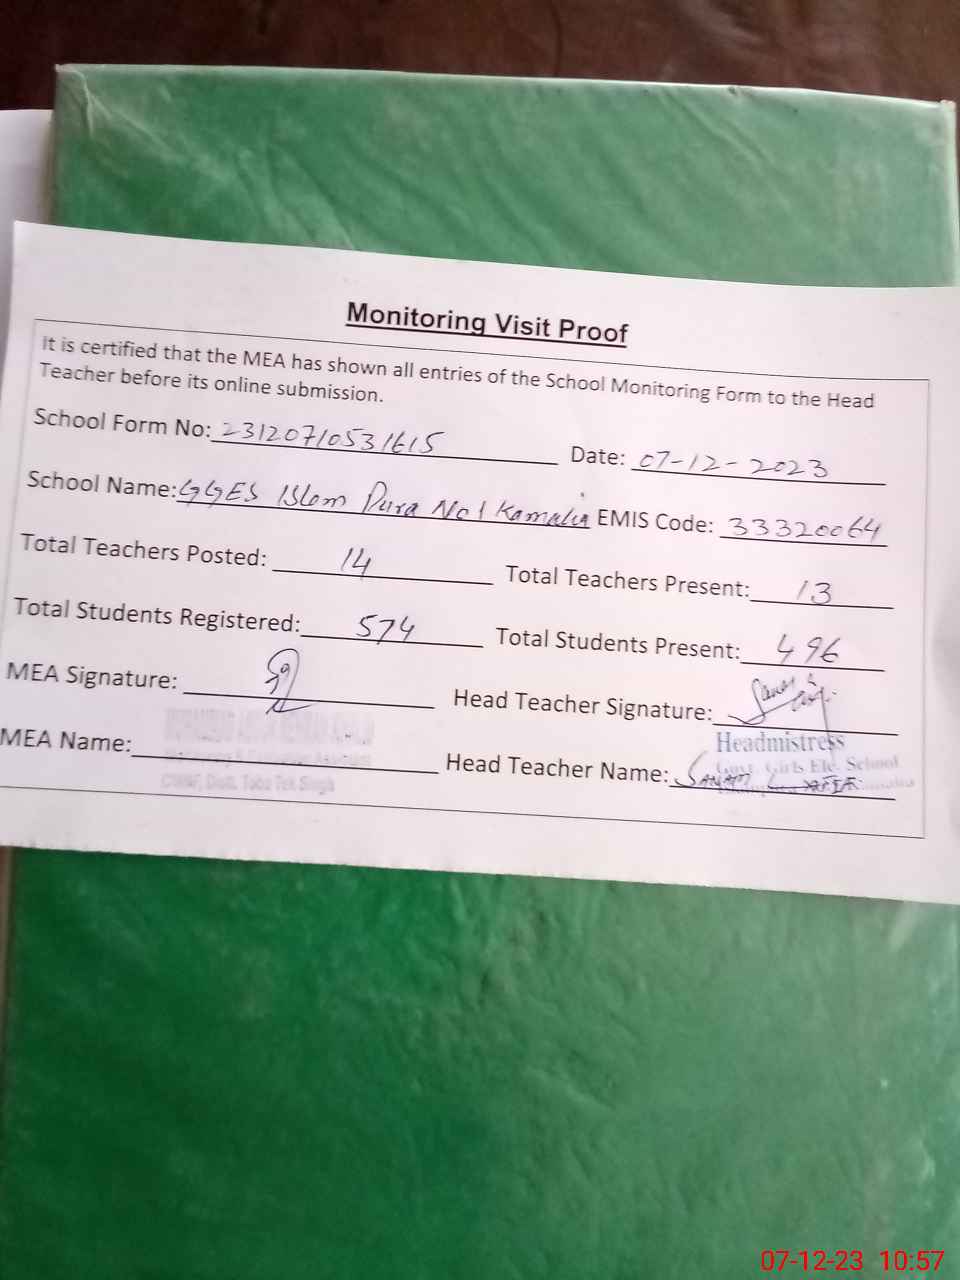 Monitoring Visit Proof
It is certified that the MEA has shown all entries of the School Monitoring Form to the Head
Teacher before its online submission.
School Form No: 23120710531615 Date: 07-12-2023
School Name: GGES Islam Pura No 1 Kamalia EMIS Code: 33320064
Total Teachers Posted: 14 Total Teachers Present: 13
Total Students Registered: 574 Total Students Present: 496
MEA Signature: Head Teacher Signature:
Headmistress
Govt. Girls Ele. School
MEA Name: Head Teacher Name: SANAM
Monitoring & Evaluation Assistant
Distt. Toba Tek Singh
07-12-23 10:57